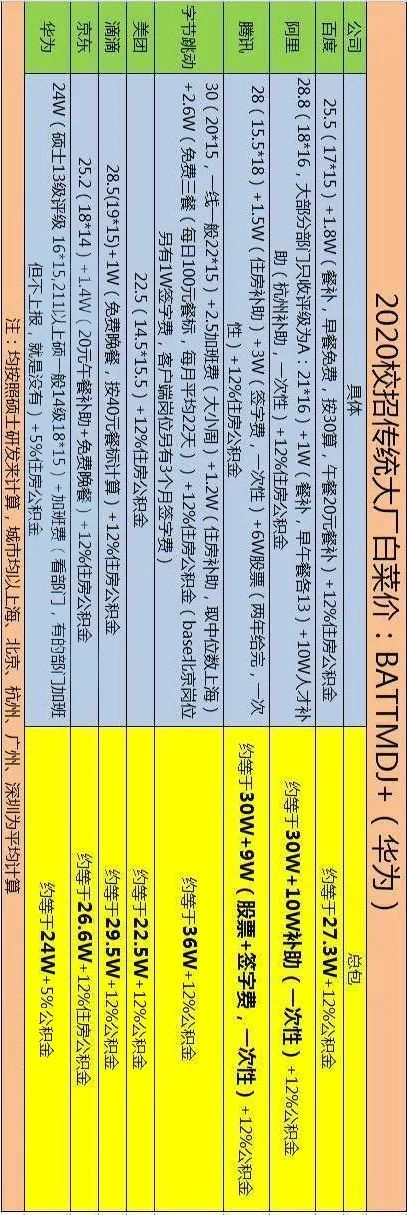 2020校招传统大厂白菜价：BATTMDJ+（华为）
公司 具体 总包
百度 25.5（17*15）+1.8W（餐补，早餐免费，按30算，午餐20元餐补）+12%住房公积金 约等于27.3W+12%公积金
阿里 28.8（18*16，大部分部门只收评级为A，21*16）+1W（餐补，早午餐各13）+10W人才补
助（杭州补助，一次性）+12%住房公积金 约等于30W+10W补助（一次性）+12%公积金
腾讯 28（15.5*18）+1.5W（住房补助）+3W（签字费，一次性）+6W股票（两年给完，一次
性）+12%住房公积金 约等于30W+9W（股票+签字费，一次性）+12%公积金
字节跳动 30（20*15，一线一般22*15）+2.5加班费（大小周）+1.2W（住房补助，取中位数上海）
+2.6W（免费三餐（每日100元餐标，每月平均22天））+12%住房公积金（base北京岗位
另有1W签字费，客户端岗位另有3个月签字费） 约等于36W+12%公积金
美团 22.5（14.5*15.5）+12%住房公积金 约等于22.5W+12%公积金
滴滴 28.5(19*15)+1W（免费晚餐，按40元餐标计算）+12%住房公积金 约等于29.5W+12%公积金
京东 25.2（18*14）+1.4W（20元午餐补助+免费晚餐）+12%住房公积金 约等于26.6W+12%住房公积金
华为 24W（硕士13级评级 16*15,211以上硕一般14级18*15）+加班费（看部门，有的部门加班
但不上报，就是没有）+5%住房公积金 约等于24W+5%公积金
注：均按照硕士研发来计算，城市均以上海、北京、杭州、广州、深圳为平均计算